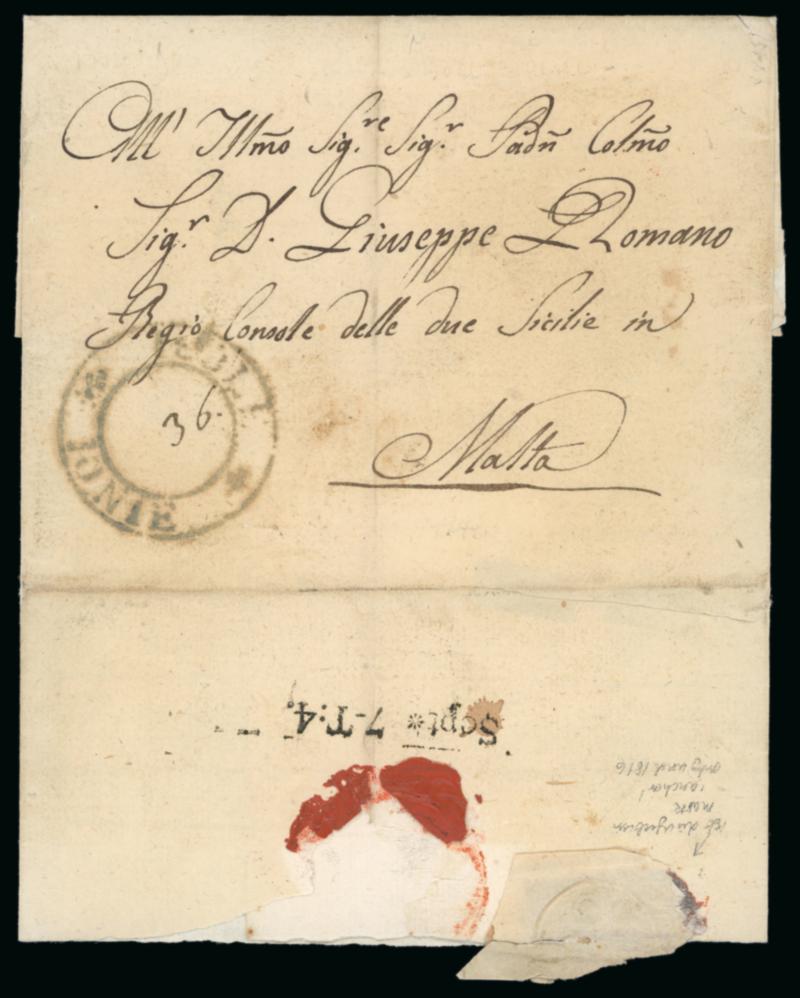 All' Illm̃o Sig.re Sig.r Padñ Colm̃o
Sig.r D. Giuseppe Romano
Regio Console delle due Sicilie in
Malta
36.
IONIE
Sept * 7-T:4
only used 1816